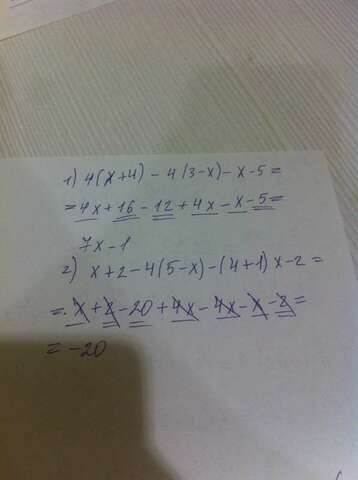 1) 4(x+4) - 4(3-x) - x-5 =
= 4x + 16 - 12 + 4x - x - 5 =
7x - 1
2) x+2-4(5-x)-(4+1)x-2 =
= x + 2 - 20 + 4x - 4x - x - 2 =
= -20